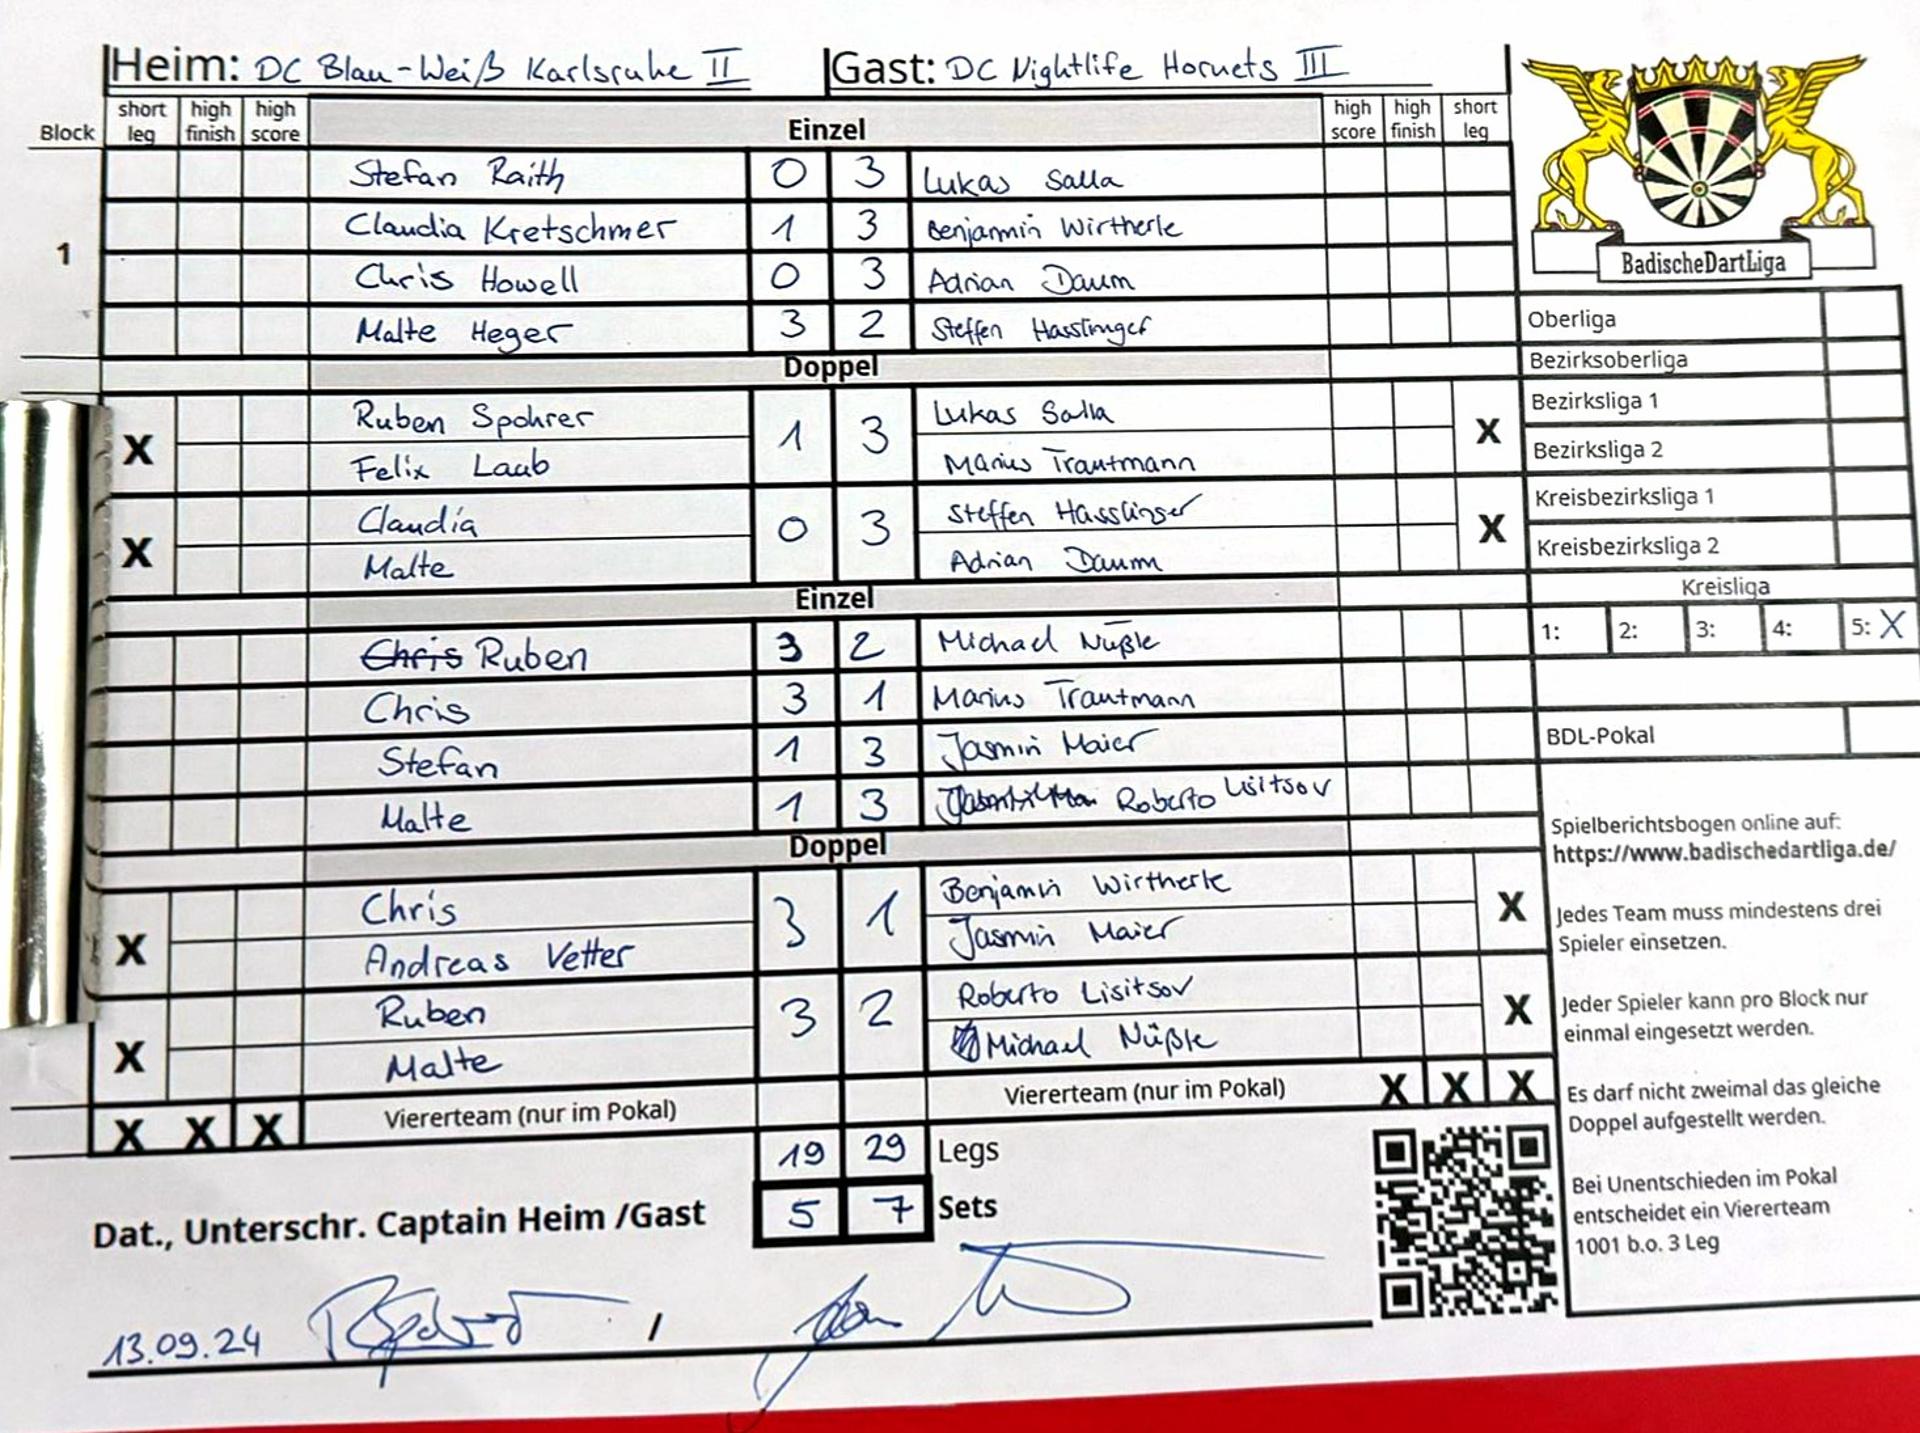 Heim: DC Blau-Weiß Karlsruhe II Gast: DC Nightlife Hornets III
Block short leg high finish high score Einzel high score high finish short leg
Stefan Raith 0 3 Lukas Salla
Claudia Kretschmer 1 3 Benjamin Wirtherle
1
Chris Howell 0 3 Adrian Daum
Malte Heger 3 2 Steffen Hasslinger
Doppel
Ruben Spohrer 1 3 Lukas Salla
X Felix Laub Marius Trautmann X
Claudia 0 3 Steffen Hasslinger
X Malte Adrian Daum X
Einzel
Chris Ruben 3 2 Michael Nüßle
Chris 3 1 Marius Trautmann
Stefan 1 3 Jasmin Maier
Malte 1 3 Roberto Lisitsov
Doppel
Chris 3 1 Benjamin Wirtherle
X Andreas Vetter Jasmin Maier X
Ruben 3 2 Roberto Lisitsov
X Malte Michael Nüßle X
X X X Viererteam (nur im Pokal) Viererteam (nur im Pokal) X X X
19 29 Legs
5 7 Sets
Dat., Unterschr. Captain Heim /Gast
13.09.24 /
BadischeDartLiga
Oberliga
Bezirksoberliga
Bezirksliga 1
Bezirksliga 2
Kreisbezirksliga 1
Kreisbezirksliga 2
Kreisliga
1: 2: 3: 4: 5: X
BDL-Pokal
Spielberichtsbogen online auf:
https://www.badischedartliga.de/
Jedes Team muss mindestens drei
Spieler einsetzen.
Jeder Spieler kann pro Block nur
einmal eingesetzt werden.
Es darf nicht zweimal das gleiche
Doppel aufgestellt werden.
Bei Unentschieden im Pokal
entscheidet ein Viererteam
1001 b.o. 3 Leg